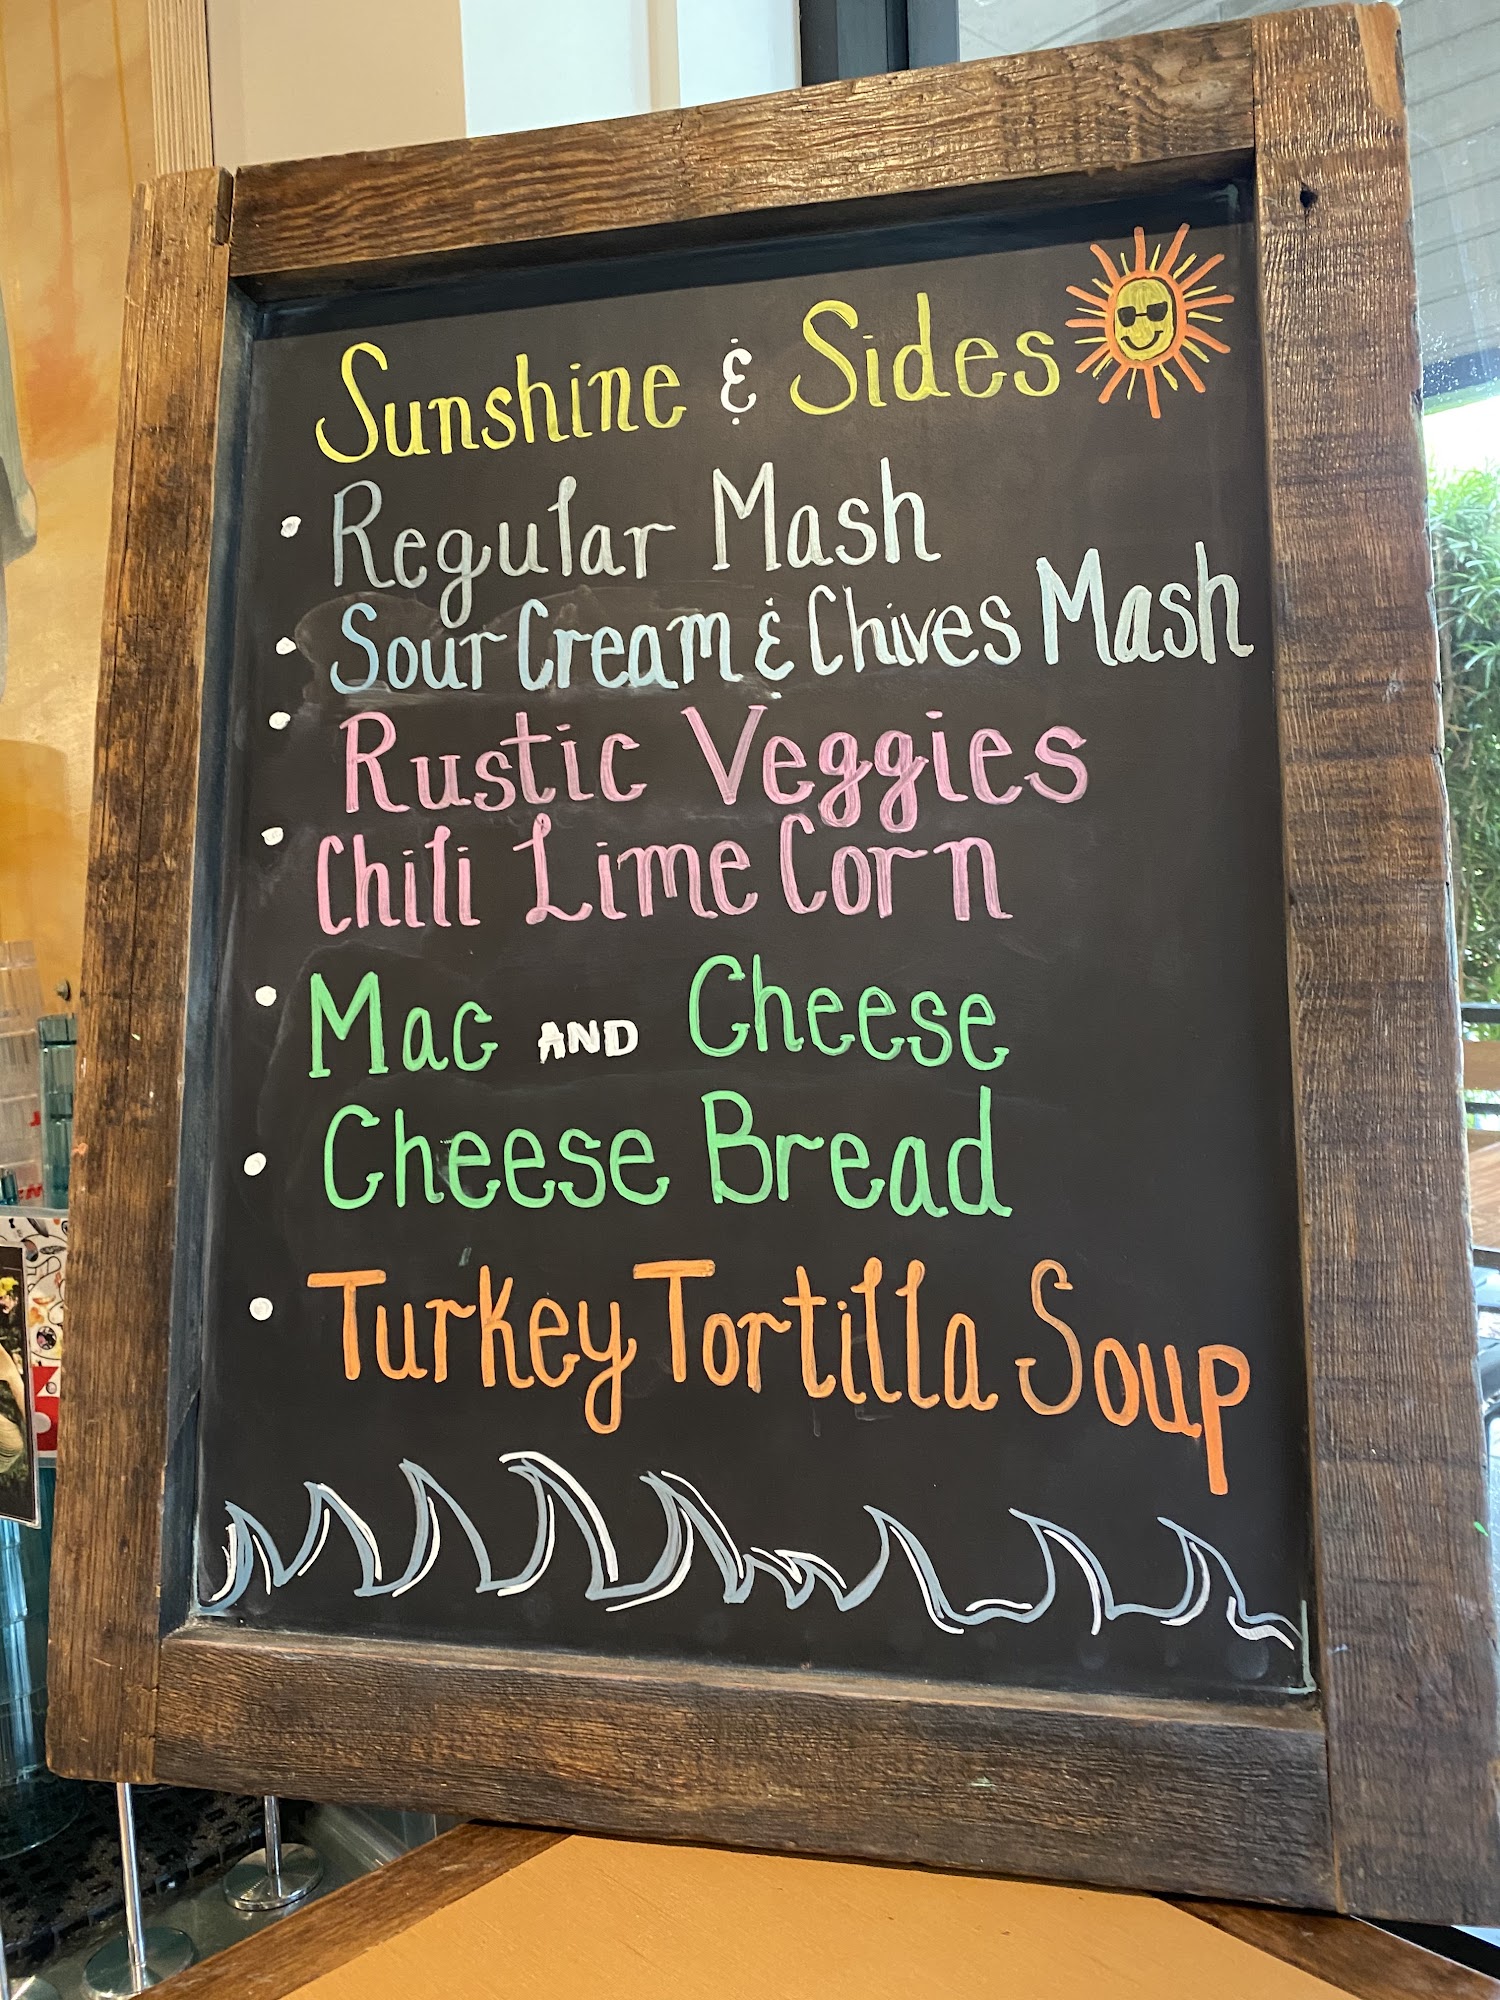 Sunshine & Sides
• Regular Mash
• Sour Cream & Chives Mash
• Rustic Veggies
• Chili Lime Corn
• Mac AND Cheese
• Cheese Bread
• Turkey Tortilla Soup